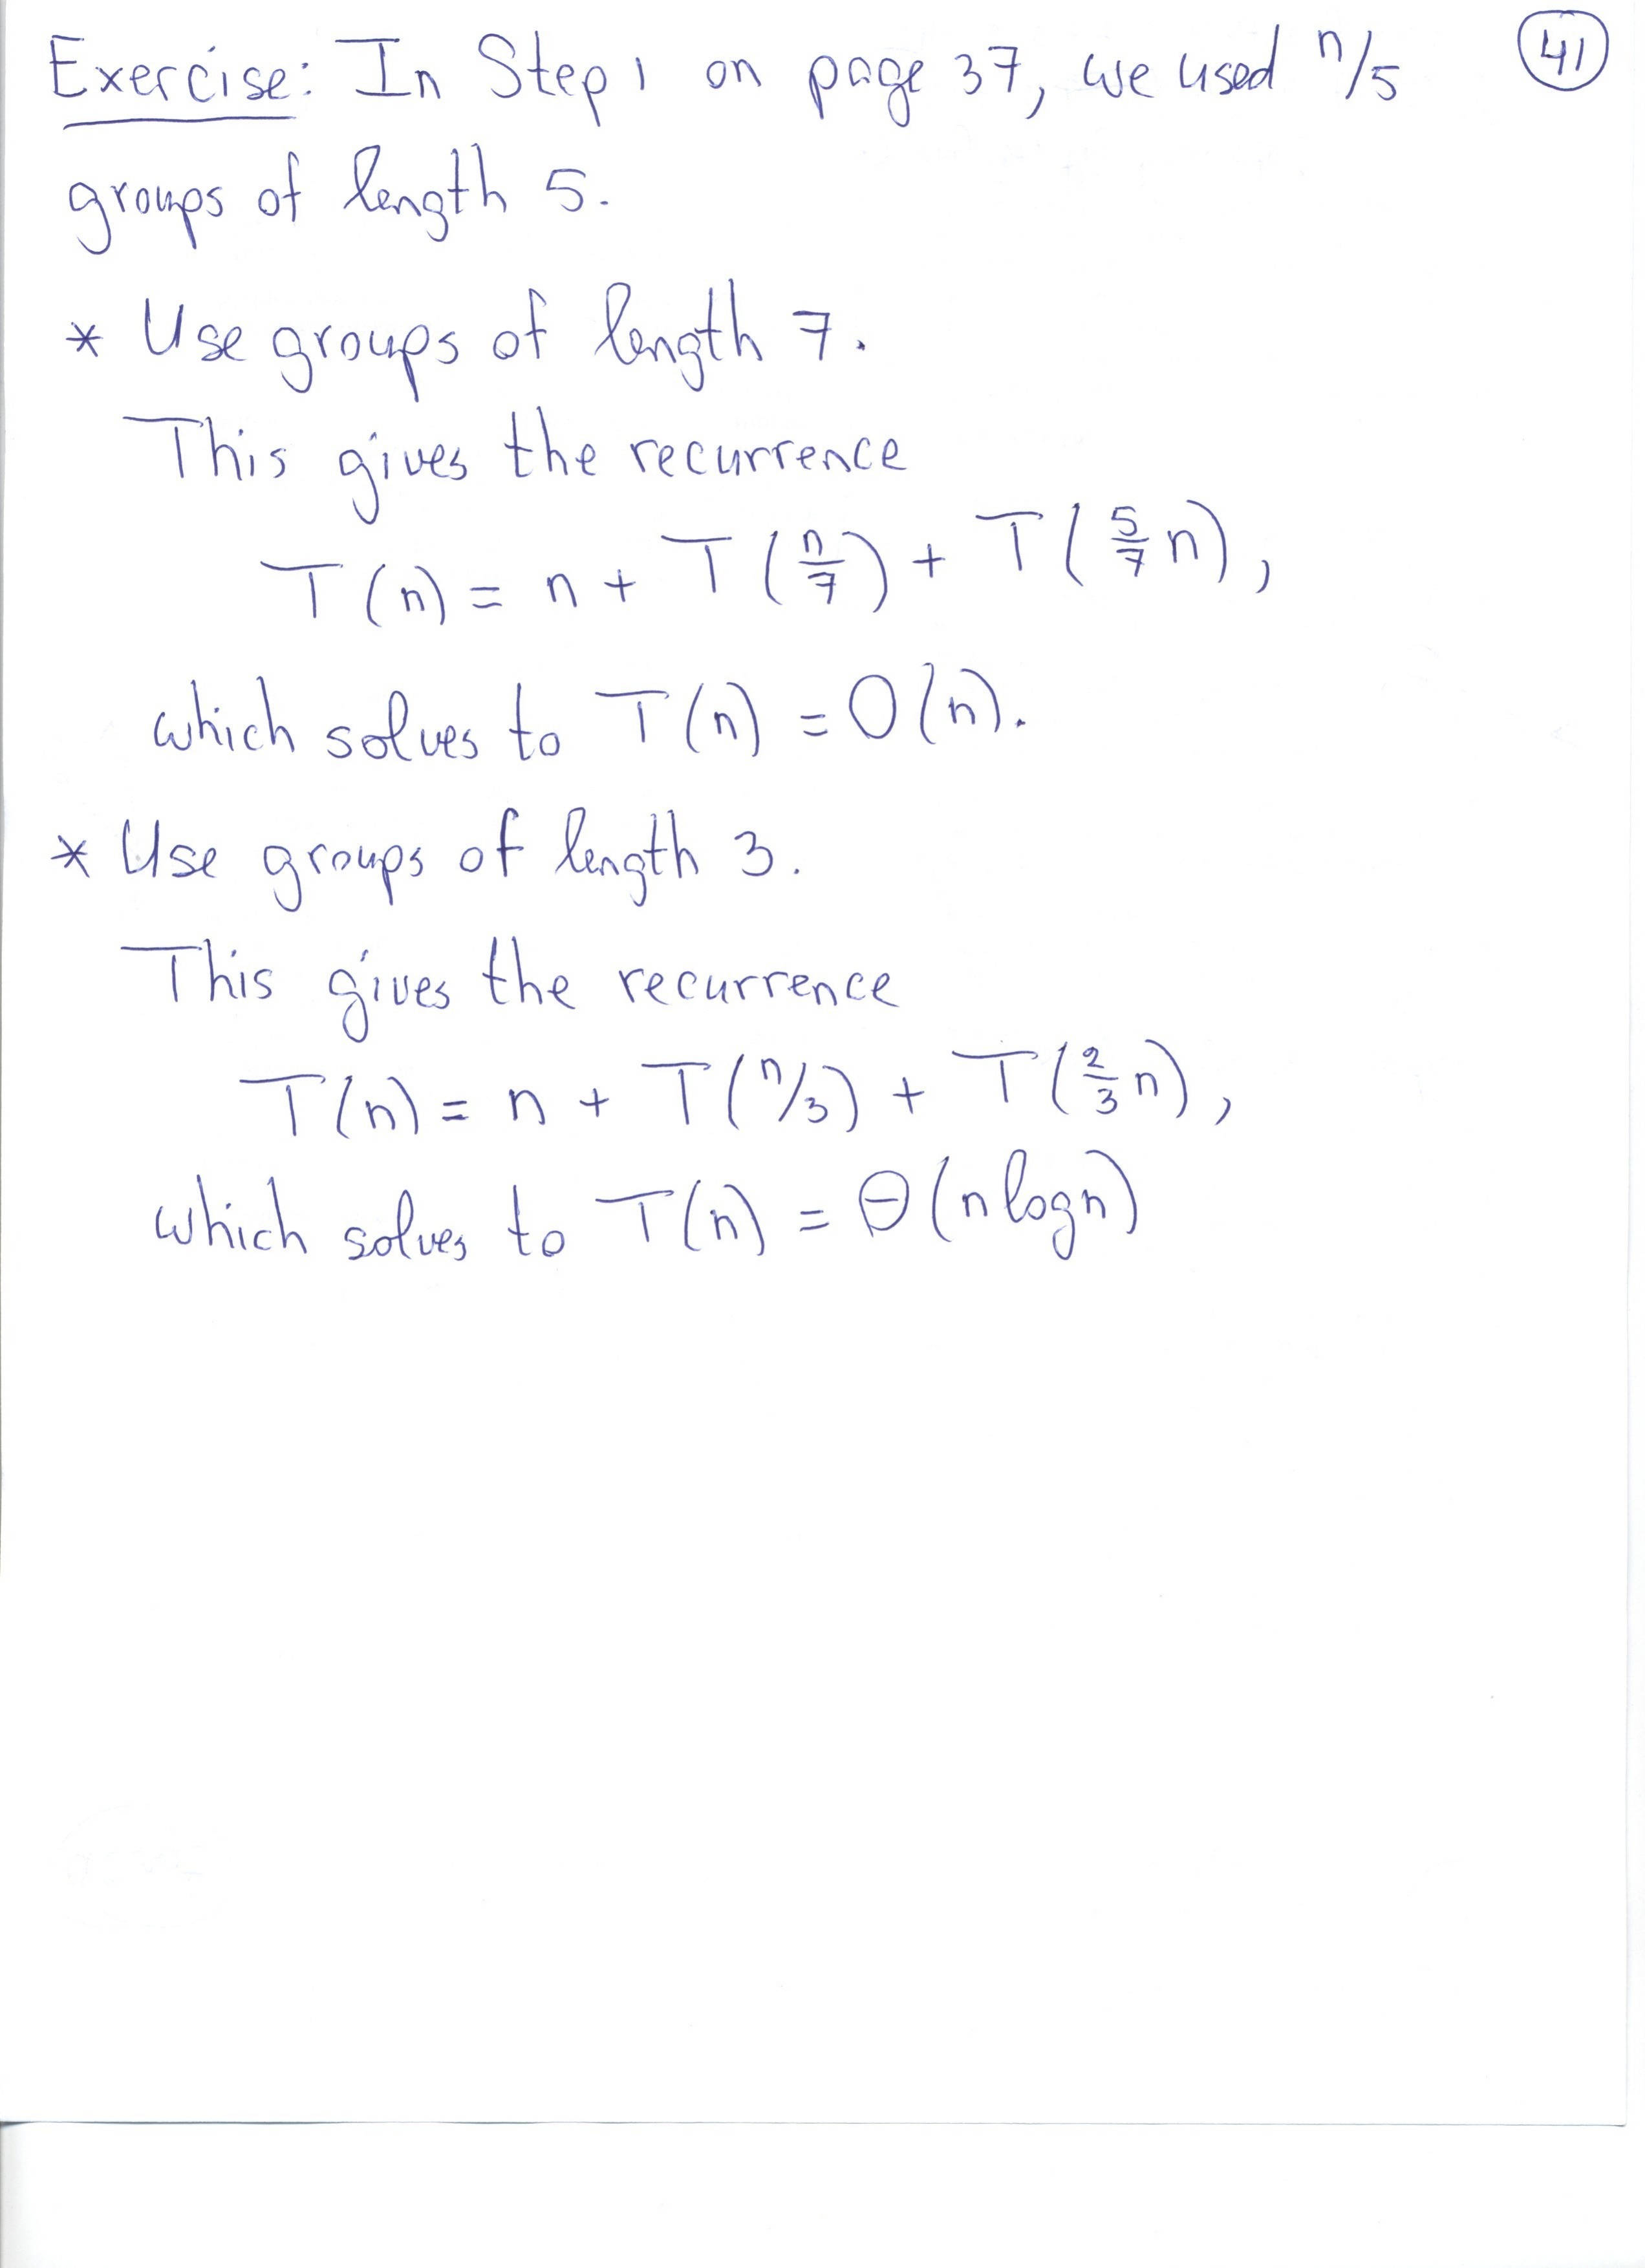 Exercise: In Step 1 on page 37, we used n/5
41
groups of length 5.
* Use groups of length 7.
This gives the recurrence
T(n) = n + T(n/7) + T(5/7 n),
which solves to T(n) = O(n).
* Use groups of length 3.
This gives the recurrence
T(n) = n + T(n/3) + T(2/3 n),
which solves to T(n) = Θ(n log n)